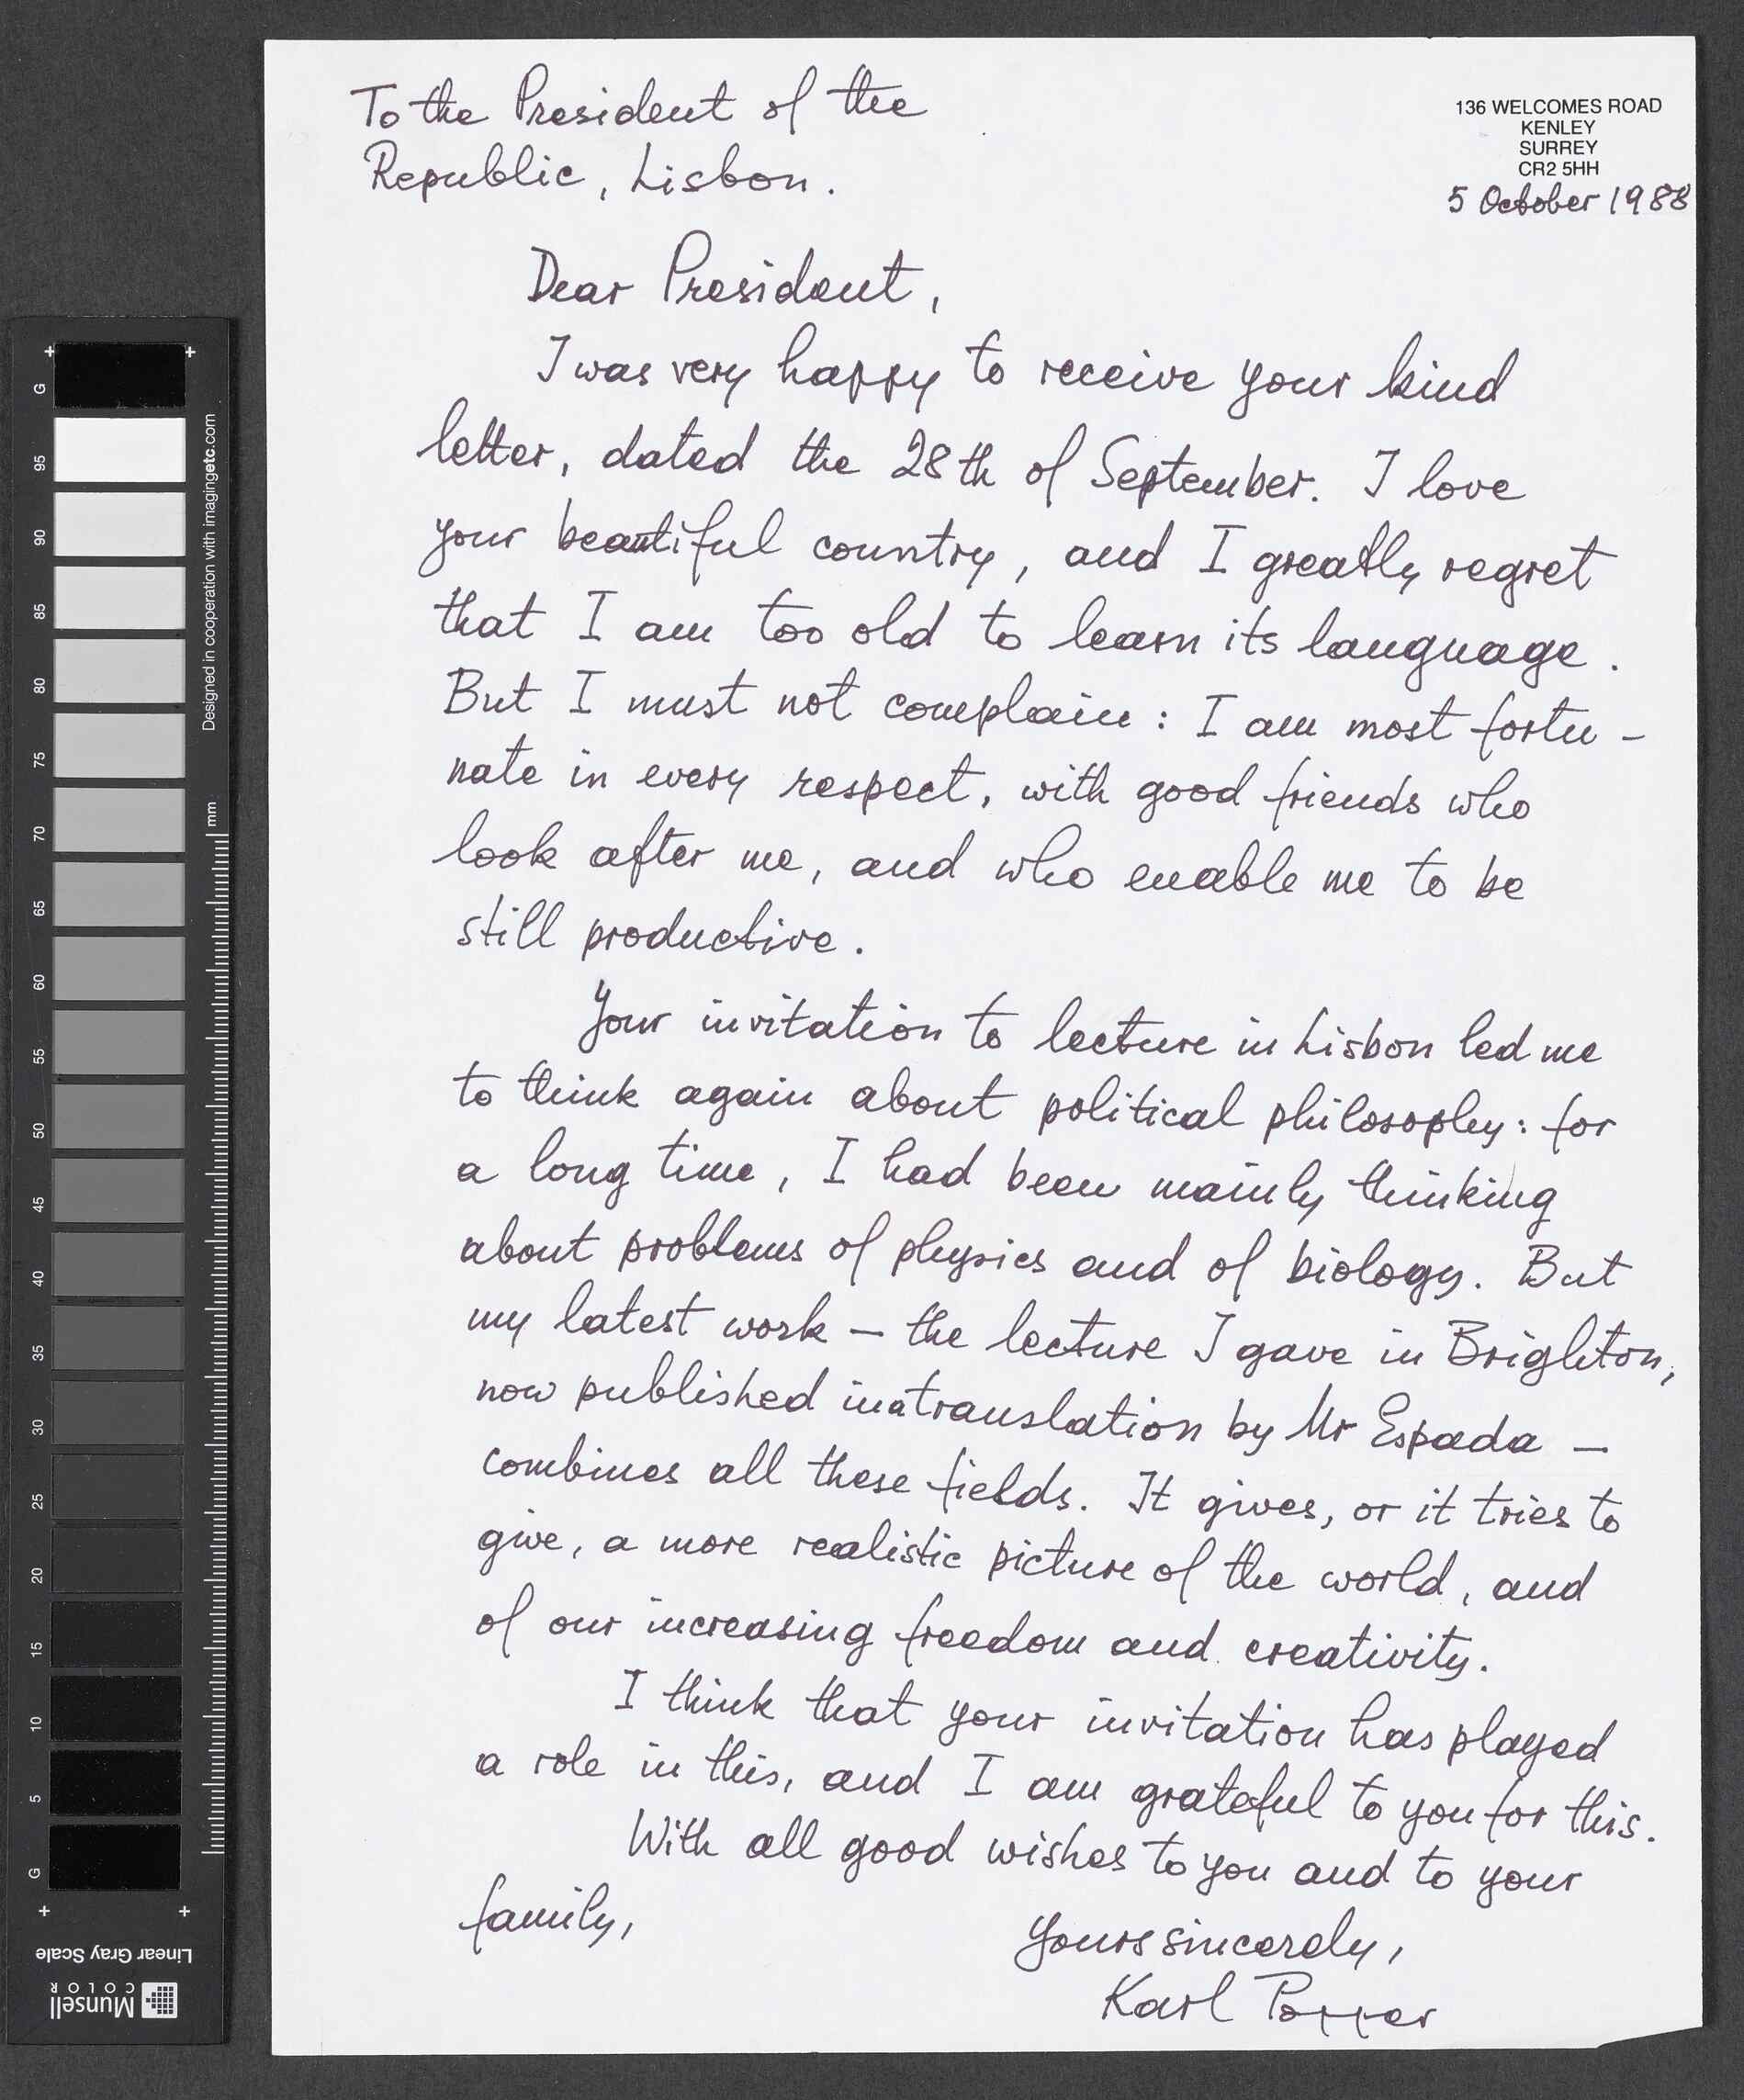 To the President of the
Republic, Lisbon.
136 WELCOMES ROAD
KENLEY
SURREY
CR2 5HH
5 October 1988
Dear President,
I was very happy to receive your kind
letter, dated the 28th of September. I love
your beautiful country, and I greatly regret
that I am too old to learn its language.
But I must not complain: I am most fortu-
nate in every respect, with good friends who
look after me, and who enable me to be
still productive.
Your invitation to lecture in Lisbon led me
to think again about political philosophy: for
a long time, I had been mainly thinking
about problems of physics and of biology. But
my latest work – the lecture I gave in Brighton,
now published in a translation by Mr Espada –
combines all these fields. It gives, or it tries to
give, a more realistic picture of the world, and
of our increasing freedom and creativity.
I think that your invitation has played
a role in this, and I am grateful to you for this.
With all good wishes to you and to your
family,
Yours sincerely,
Karl Popper
G
95
90
85
80
75
70
65
60
55
50
45
40
35
30
25
20
15
10
5
G
Designed in cooperation with imagingetc.com
mm
Linear Gray Scale
Munsell
COLOR